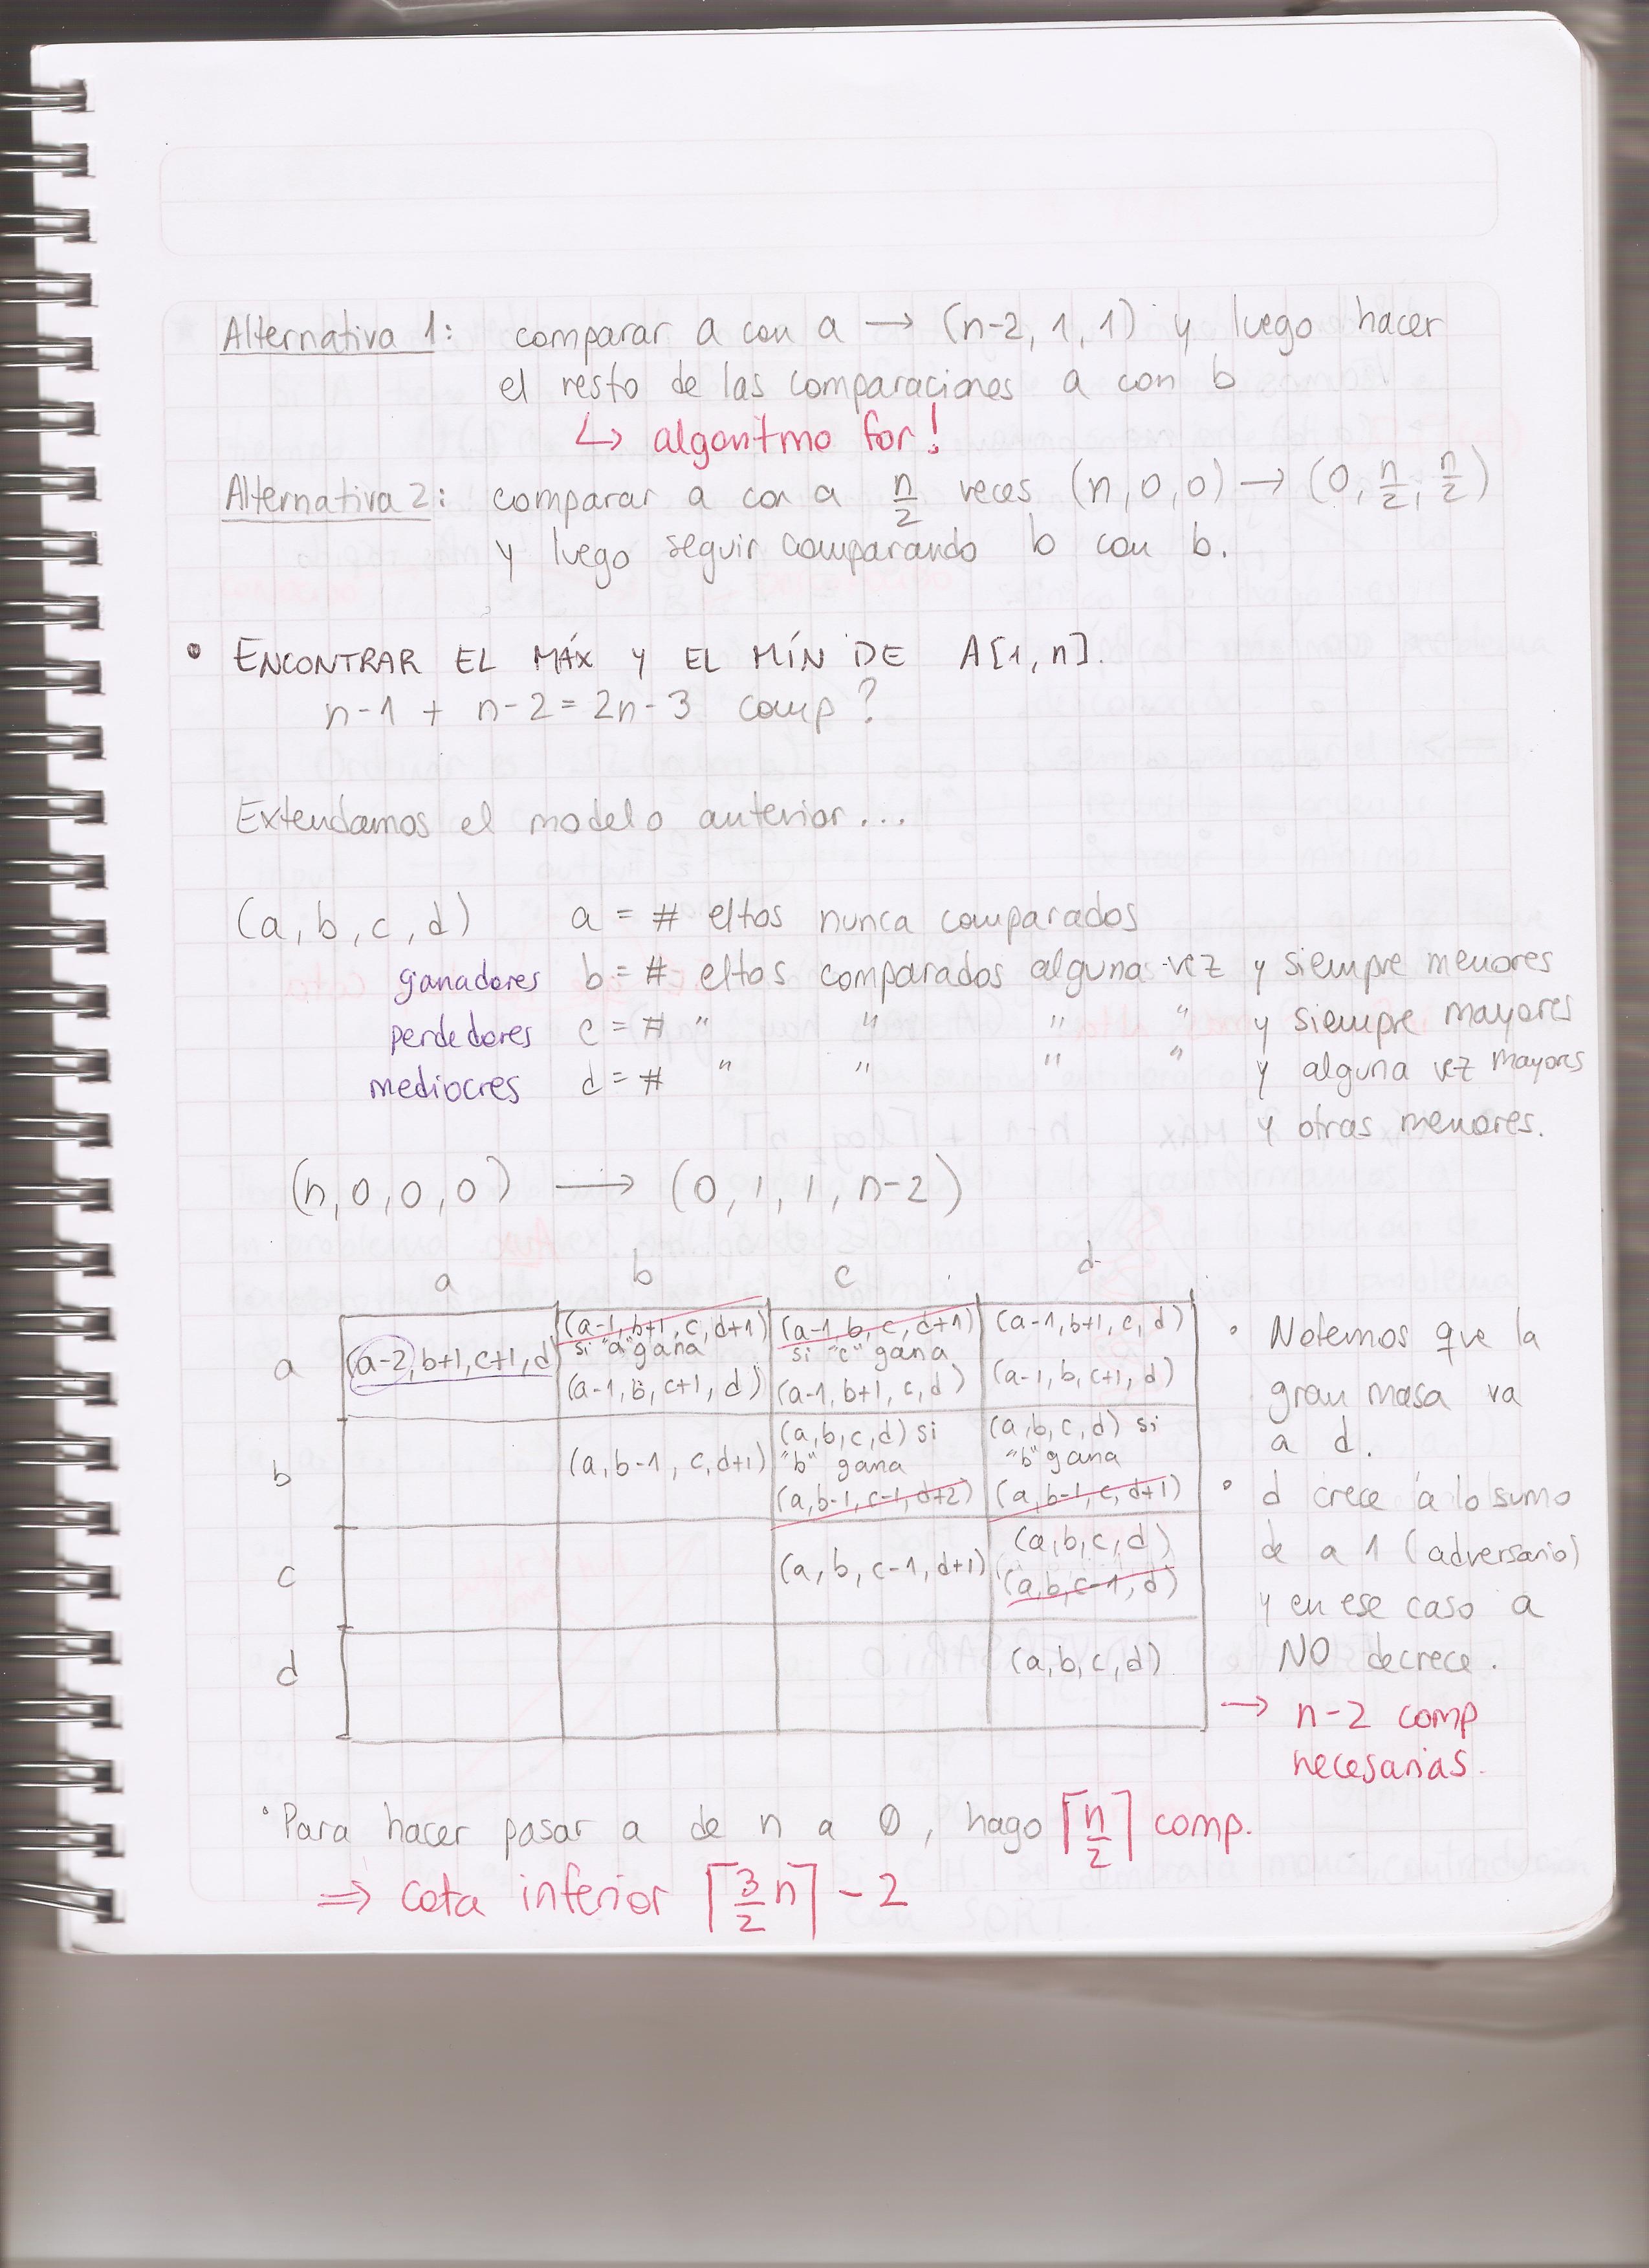 Alternativa 1: comparar a con a → (n-2, 1, 1) y luego hacer
el resto de las comparaciones a con b
↳ algoritmo for!
Alternativa 2: comparar a con a n/2 veces (n,0,0) → (0, n/2, n/2)
y luego seguir comparando b con b.
• ENCONTRAR EL MÁX Y EL MÍN DE A[1,n].
n-1 + n-2 = 2n-3 comp?
Extendamos el modelo anterior...
(a, b, c, d) a = # eltos nunca comparados
ganadores b = # eltos comparados alguna vez y siempre menores
perdedores c = # " " " " y siempre mayores
mediocres d = # " " " " y alguna vez mayores
y otras menores.
(n,0,0,0) → (0,1,1,n-2)
a b c d
a (a-2,b+1,c+1,d) (a-1,b+1,c,d+1) si "a" gana (a-1,b,c+1,d) (a-1,b,c,d+1) si "c" gana (a-1,b+1,c,d) (a-1,b+1,c,d) (a-1,b,c+1,d)
b (a,b-1,c,d+1) (a,b,c,d) si "b" gana (a,b-1,c-1,d+2) (a,b,c,d) si "b" gana (a,b-1,c,d+1)
c (a,b,c-1,d+1) (a,b,c,d) (a,b,c-1,d)
d (a,b,c,d)
• Notemos que la
gran masa va
a d.
• d crece a lo sumo
de a 1 (adversario)
y en ese caso a
NO decrece.
→ n-2 comp
necesarias.
• Para hacer pasar a de n a 0, hago ⌈n/2⌉ comp.
⇒ cota inferior ⌈3/2 n⌉ - 2